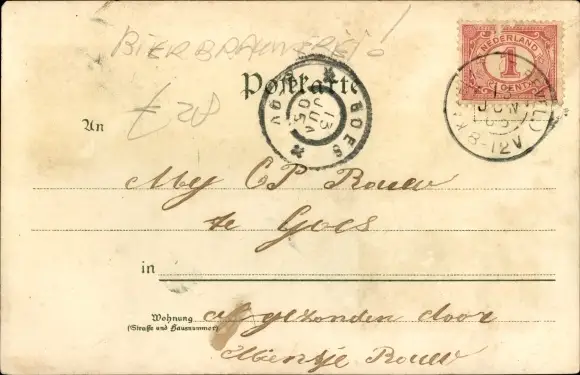 BIERBROUWEREIJ
Postkarte
NEDERLAND
1
CENT
GOES
13
JUN
05
8-12V
£ 28
An
Mej CP Rouw
te Goes
in
Wohnung
(Straße und Hausnummer)
afgezonden door
Mentje Rouw